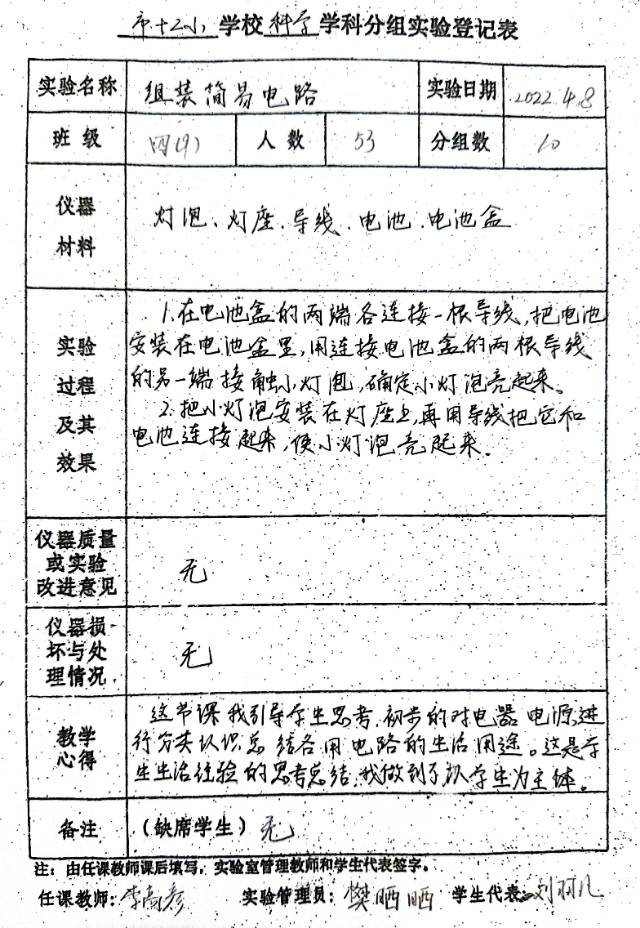 市十二小学校科学学科分组实验登记表
实验名称 组装简易电路 实验日期 2022.4.8
班级 四(9) 人数 53 分组数 10
仪器
材料
灯泡、灯座、导线、电池、电池盒
实验
过程
及其
效果
1.在电池盒的两端各连接一根导线,把电池
安装在电池盒里,用连接电池盒的两根导线
的另一端接触小灯泡,确定小灯泡亮起来。
2.把小灯泡安装在灯座上,再用导线把它和
电池连接起来,使小灯泡亮起来。
仪器质量
或实验
改进意见
无
仪器损
坏与处
理情况
无
教学
心得
这节课我引导学生思考,初步的对电器 电源进
行分类认识总结各用电路的生活用途。这是学
生生活经验的思考总结,我做到了以学生为主体。
备注 (缺席学生) 无
注:由任课教师课后填写,实验室管理教师和学生代表签字。
任课教师:李高彦 实验管理员:樊晒晒 学生代表:刘羽凡